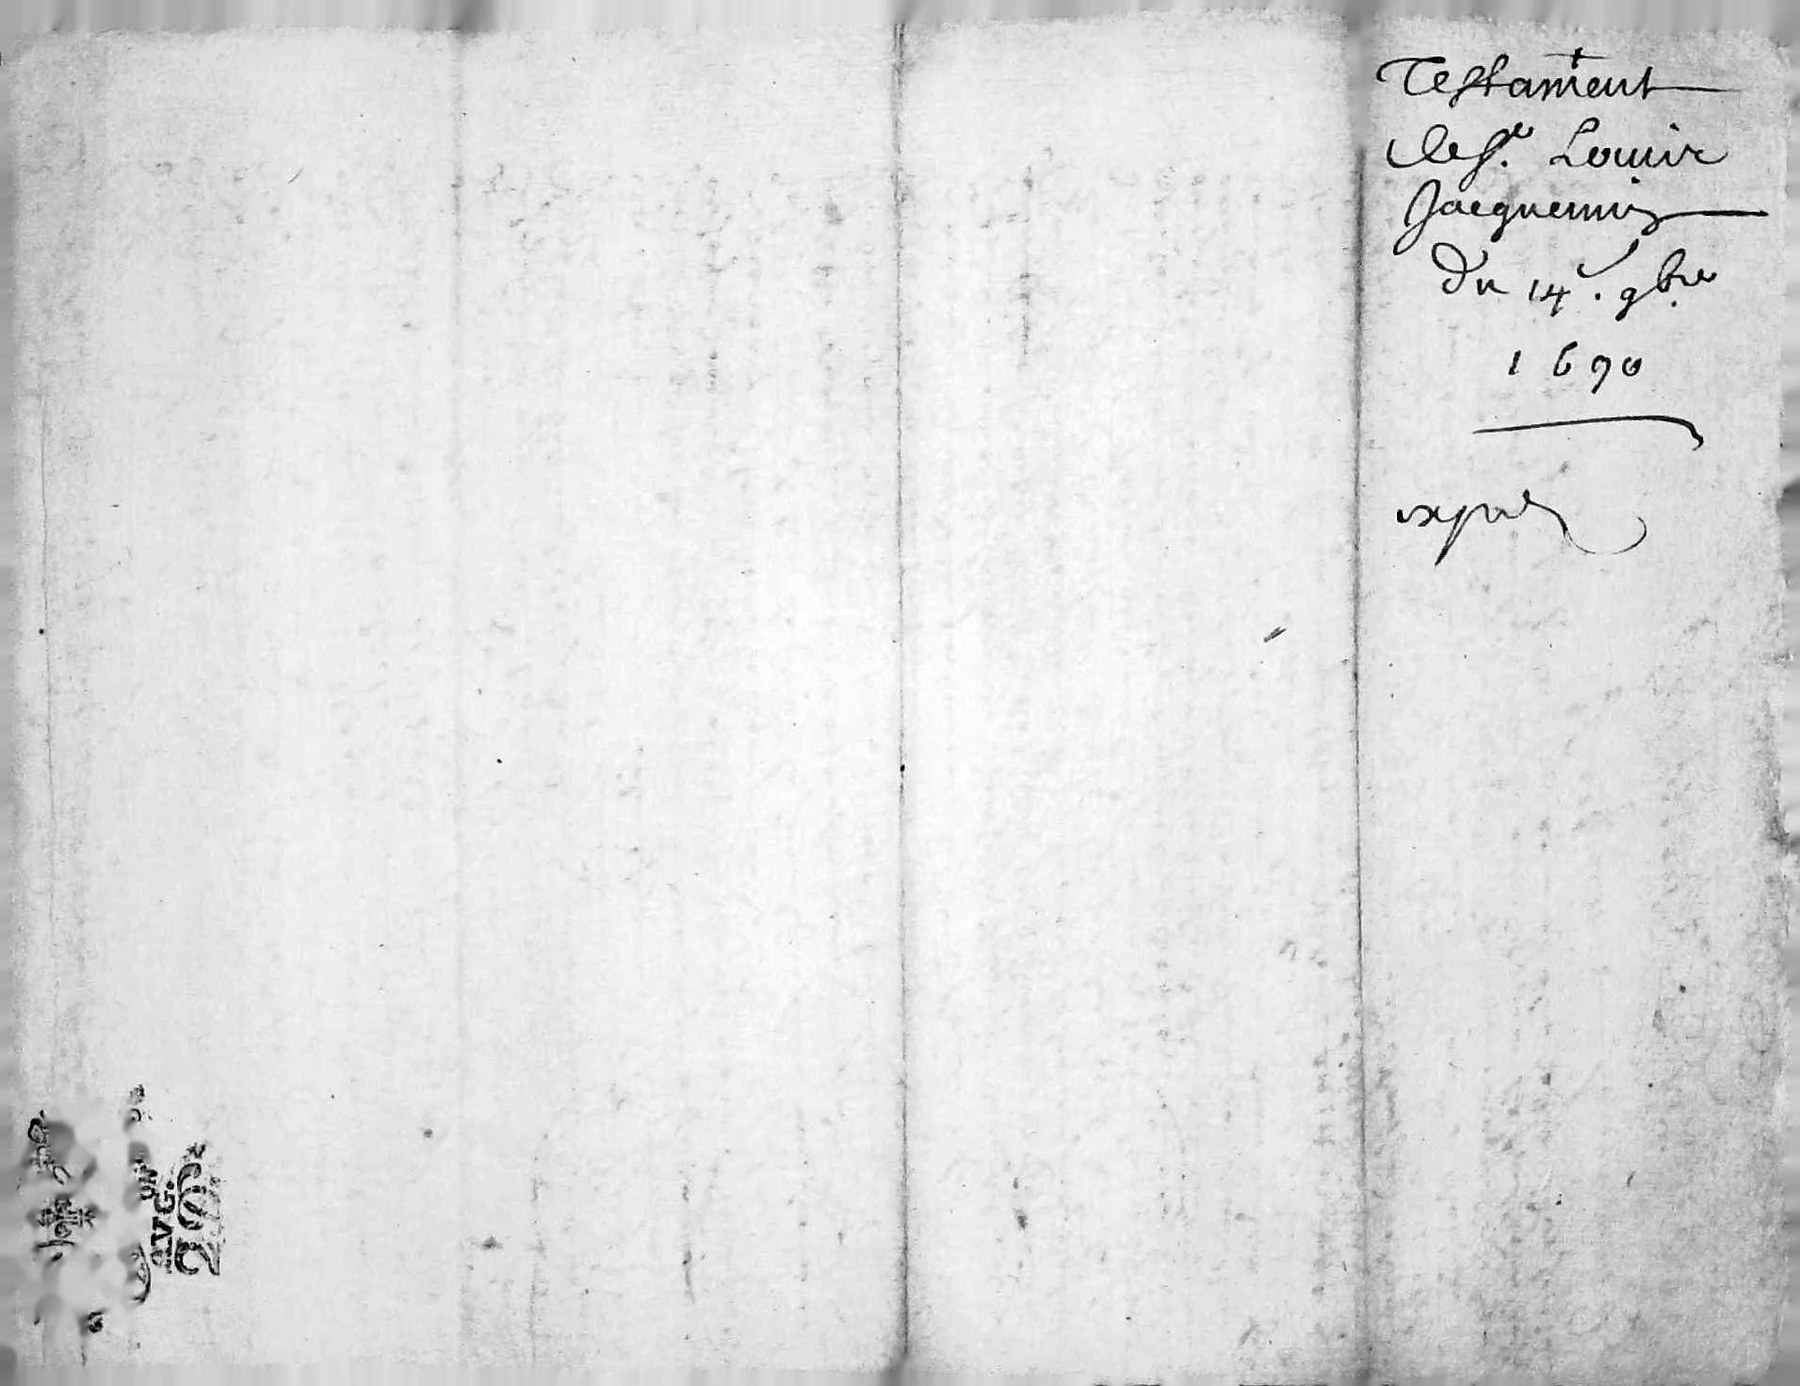 Testament
de Sr. Louis
Jacquemin
Du 14e. 9bre.
1690
AVG.